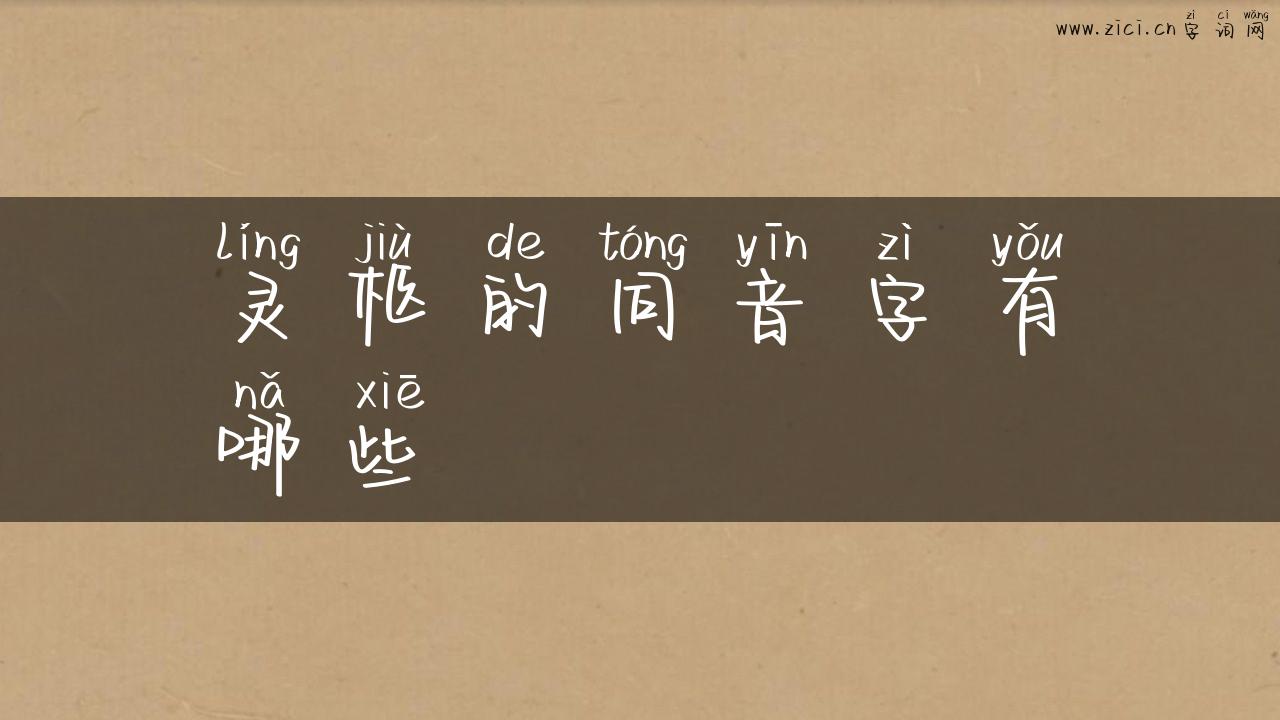 zì cí wǎng
www.zici.cn 字词网
líng jiù de tóng yīn zì yǒu
灵柩的同音字有
nǎ xiē
哪些